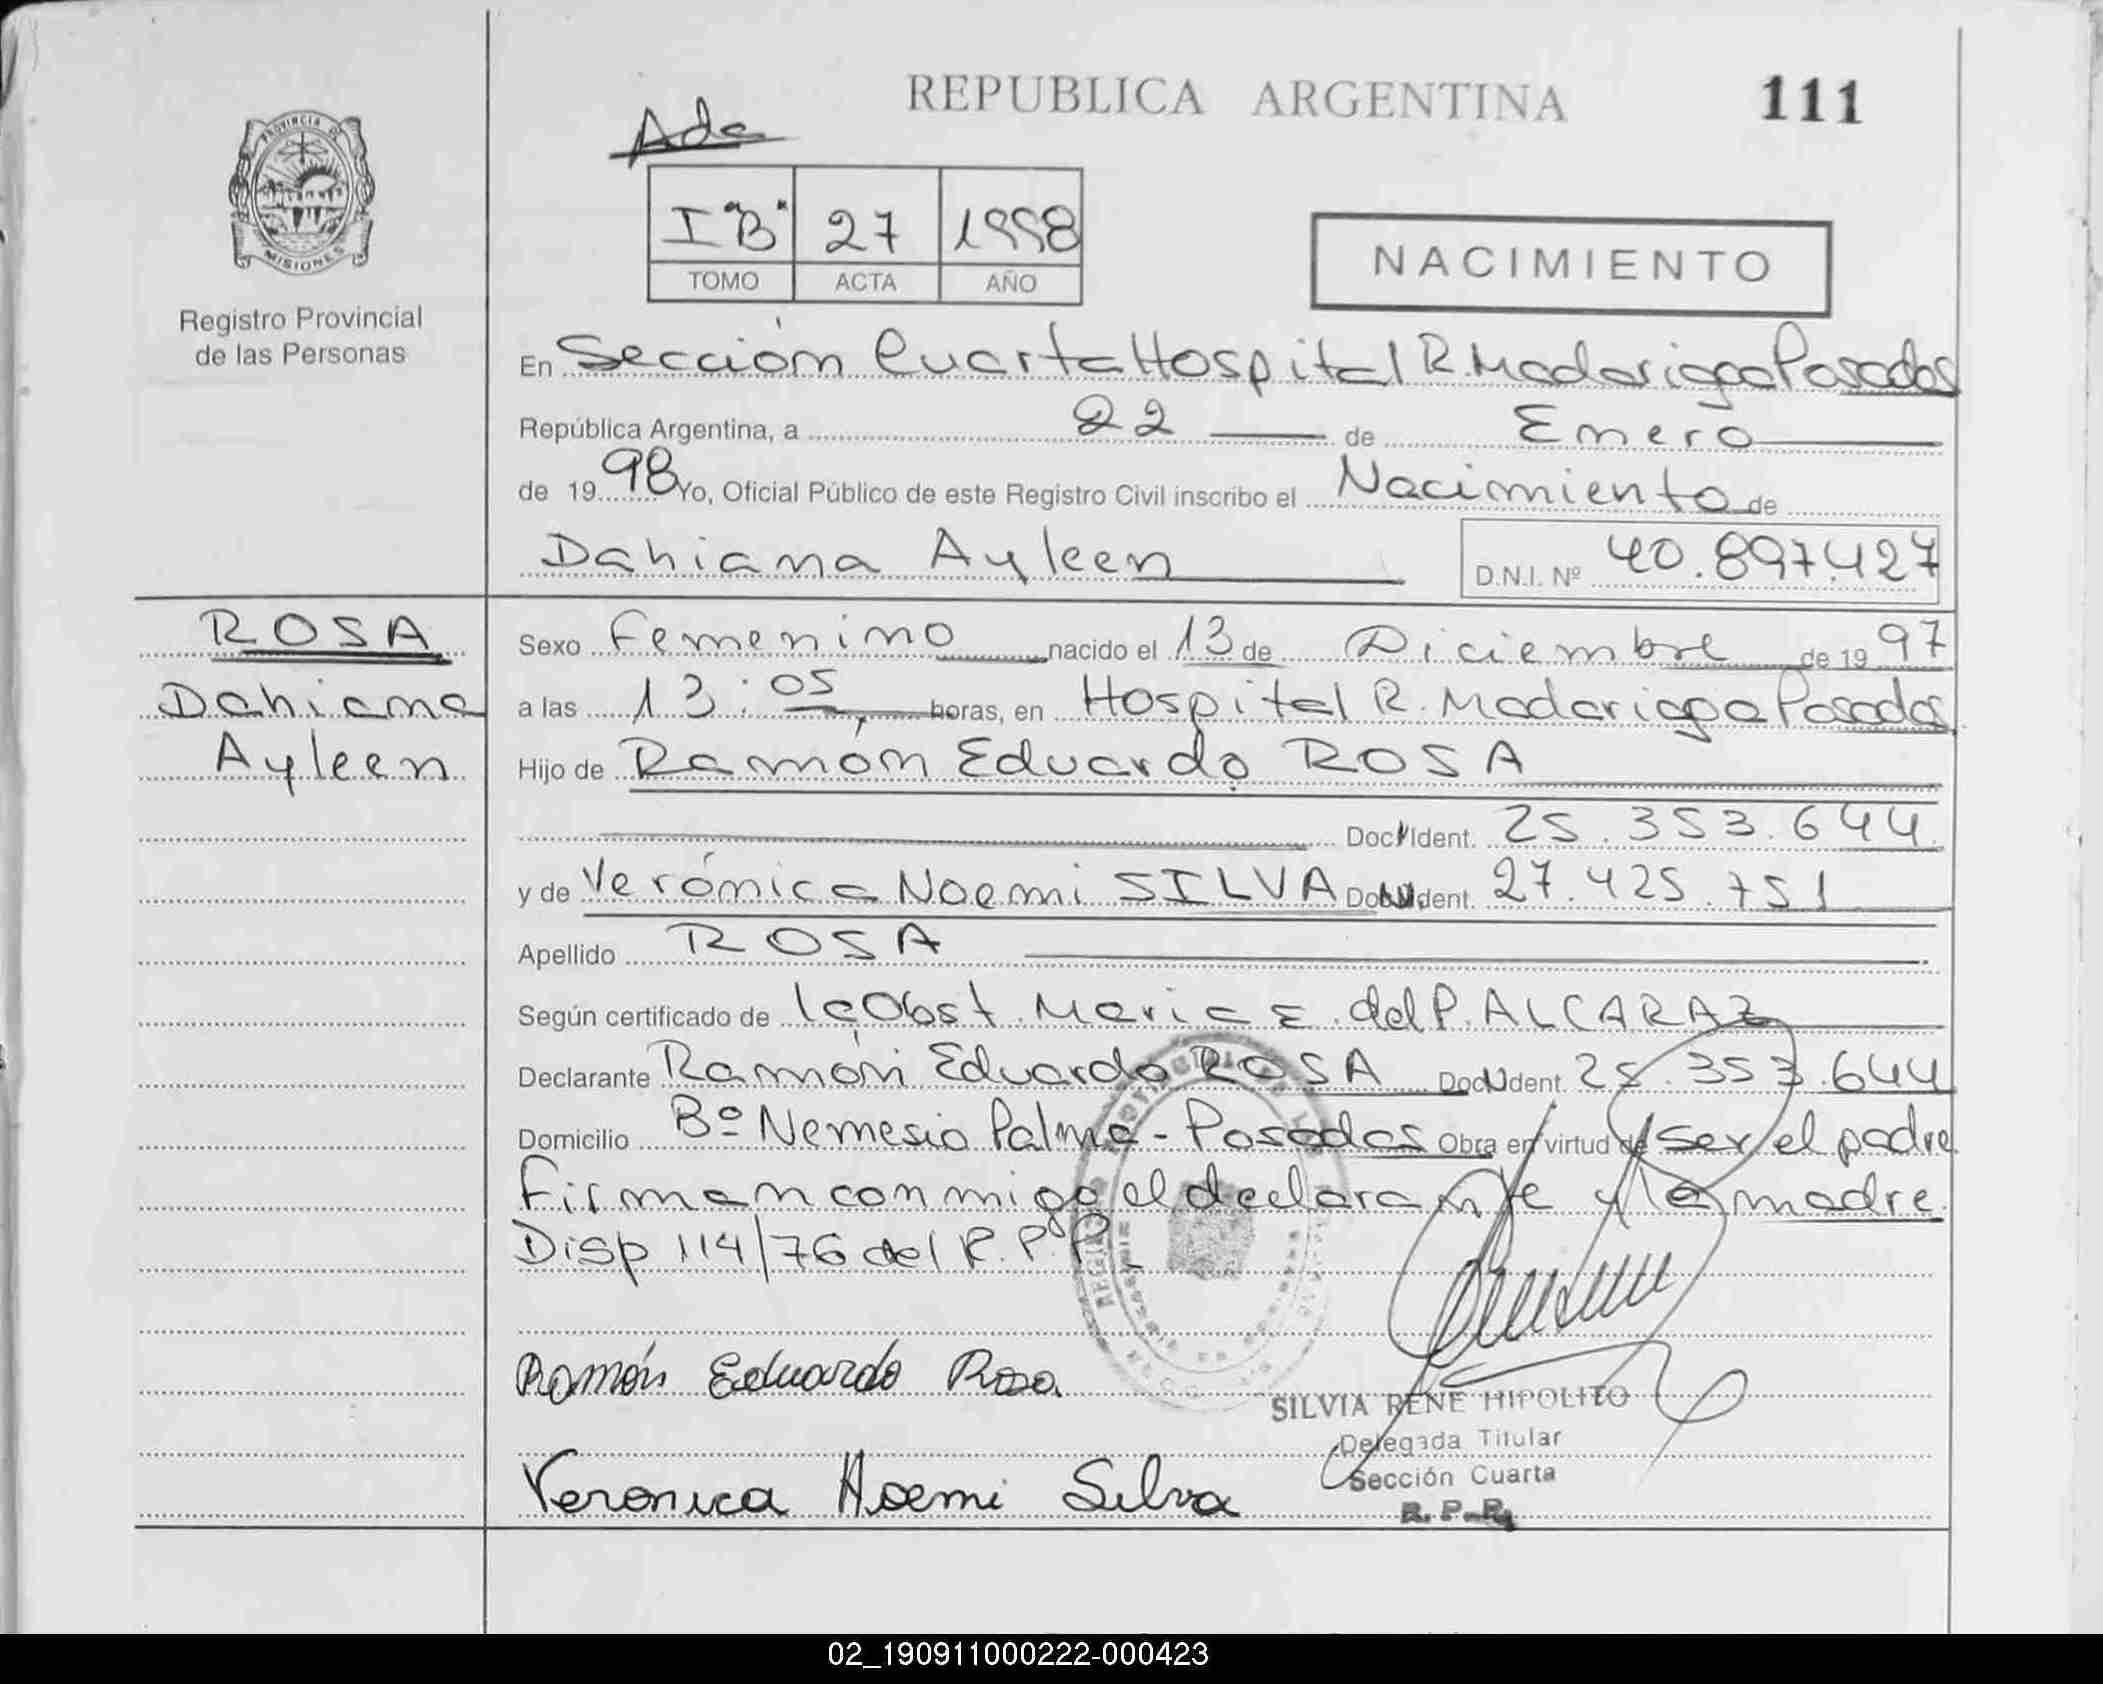 REPUBLICA ARGENTINA
111
Ada
PROVINCIA DE
MISIONES
Registro Provincial
de las Personas
I "B" 27 1998
TOMO ACTA AÑO
NACIMIENTO
En Sección Cuarta Hospital R. Madariaga Posadas
República Argentina, a 22 de Enero
de 1998 Yo, Oficial Público de este Registro Civil inscribo el Nacimiento de
Dahiana Ayleen D.N.I. Nº 40.897.427
ROSA
Dahiana
Ayleen
Sexo Femenino nacido el 13 de Diciembre de 1997
a las 13:05 horas, en Hospital R. Madariaga Posadas
Hijo de Ramón Eduardo ROSA
Doc. Ident. 25.353.644
y de Verónica Noemi SILVA Doc. Ident. 27.425.751
Apellido ROSA
Según certificado de la Obst. Maria E. del P. ALCARAZ
Declarante Ramón Eduardo ROSA Doc. Ident. 25.353.644
Domicilio Bº Nemesio Palma - Posadas Obra en virtud de ser el padre
Firman conmigo el declarante y la madre
Disp 114/76 del R.P.P.
Ramón Eduardo Rosa
SILVIA RENE HIPOLITO
Delegada Titular
Sección Cuarta
R. P. P.
Veronica Noemi Silva
02_190911000222-000423